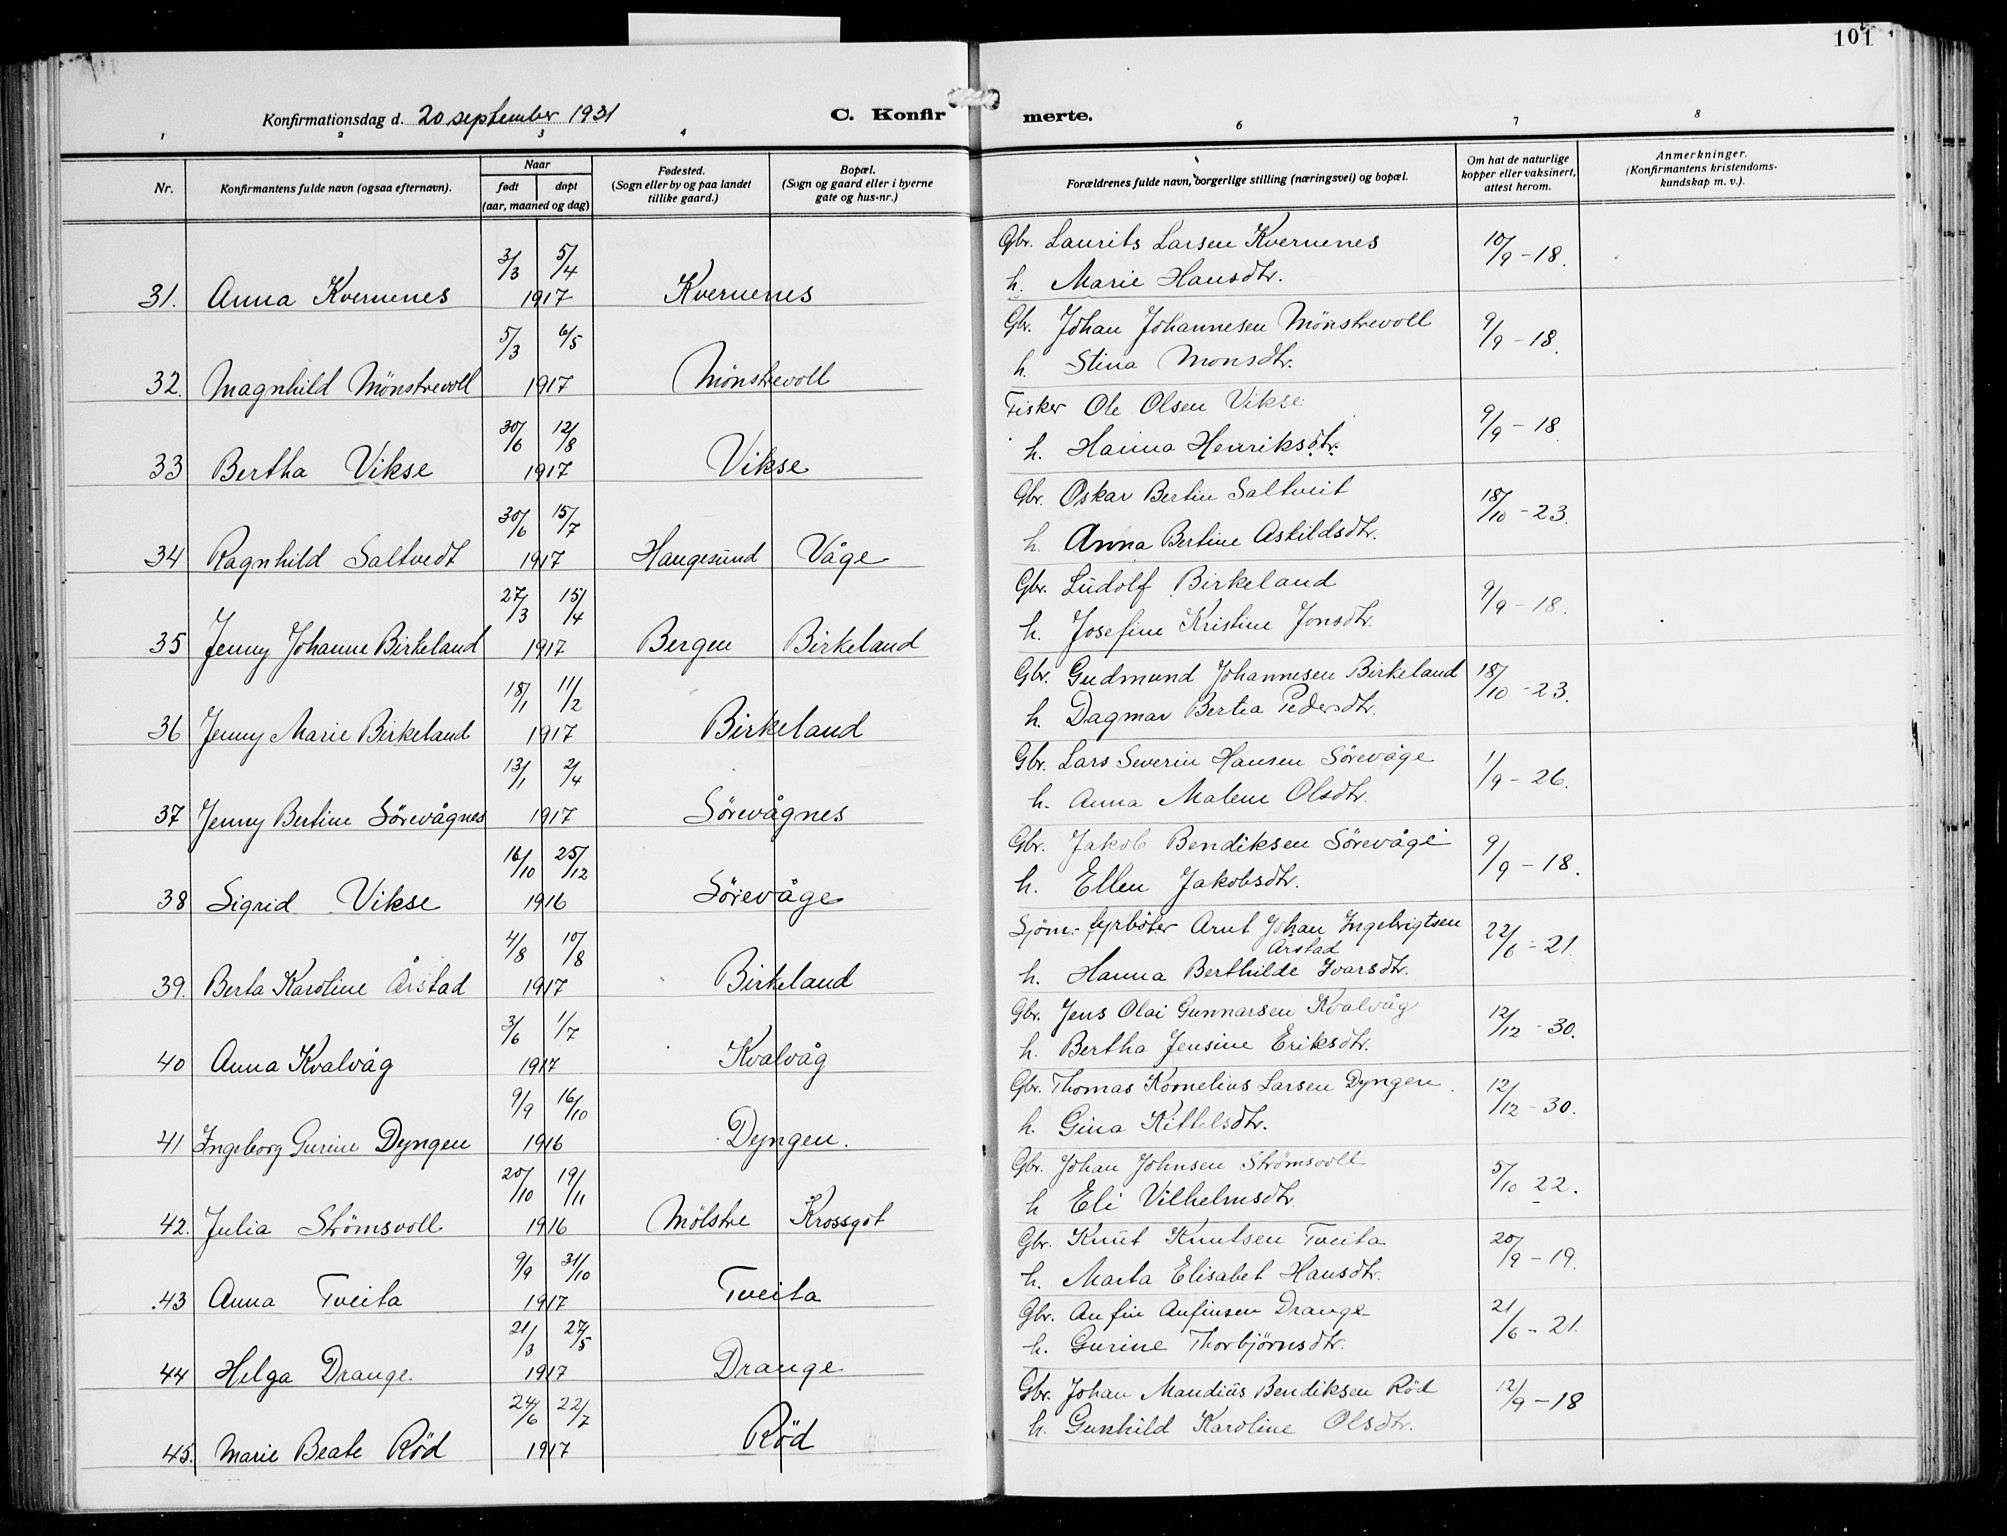 101
Konfirmationsdag d. 20 september 1931
C. Konfirmerte.
1 2 3 4 6 7 8
Nr.
Konfirmantens fulde navn (ogsaa efternavn).
Naar
født døpt
(aar, maaned og dag)
Fødested.
(Sogn eller by og paa landet
tillike gaard.)
Bopæl.
(Sogn og gaard eller i byerne
gate og hus-nr.)
Forældrenes fulde navn, borgerlige stilling (næringsvei) og bopæl.
Om hat de naturlige
kopper eller vaksinert,
attest herom.
Anmerkninger.
(Konfirmantens kristendoms-
kundskap m. v.).
3/3 5/4 Gbr. Laurits Larsen Kvernenes 10/9 - 18.
31. Anna Kvernenes 1917 Kvernenes h. Marie Hansdtr.
5/3 6/5 Gbr. Johan Johannesen Mönstrevoll 9/9 - 18.
32. Magnhild Mönstrevoll 1917 Mönstrevoll h. Stina Monsdtr.
30/6 12/8 Fisker Ole Olsen Vikse 9/9 - 18
33 Bertha Vikse 1917 Vikse h. Hanna Henriksdtr.
30/6 15/7 Gbr. Oskar Bertin Saltveit 18/10 - 23.
34 Ragnhild Saltvedt 1917 Haugesund Våge h. Anna Bertine Askildsdtr.
27/3 15/4 Gbr. Ludolf Birkeland 9/9 - 18.
35 Jenny Johanne Birkeland 1917 Bergen Birkeland h. Josefine Kristine Jonsdtr.
18/1 11/2 Gbr. Gudmund Johannesen Birkeland 18/10 - 23.
36 Jenny Marie Birkeland 1917 Birkeland h. Dagmar Bertea Pedersdtr.
13/1 2/4 Gbr. Lars Severin Hansen Sörevåge 1/9 - 26.
37 Jenny Bertine Sörevågnes 1917 Sörevågnes h. Anna Malene Olsdtr.
16/10 25/12 Gbr. Jakob Bendiksen Sörevåge 9/9 - 18.
38 Sigrid Vikse 1916 Sörevåge h. Ellen Jakobsdtr.
4/8 10/8 Sjöm.- fyrböter Arnt Johan Ingebrigtsen Årstad 22/6 - 21.
39. Berta Karoline Årstad 1917 Birkeland h. Hanna Berthilde Ivarsdtr.
3/6 1/7 Gbr. Jens Olai Gunnarsen Kvalvåg 12/12 - 30.
40 Anna Kvalvåg 1917 Kvalvåg h. Bertha Jensine Eriksdtr.
9/9 16/10 Gbr. Thomas Kornelius Larsen Dyngen. 12/12 - 30.
41 Ingeborg Gurine Dyngen 1916 Dyngen. h. Gina Kittelsdtr.
20/10 19/11 Gbr. Johan Johnsen Strömsvoll 5/10 22.
42. Julia Strömsvoll 1916 Mölstre Krossgöt h Eli Vilhelmsdtr
9/9 31/10 Gbr. Knut Knutsen Tveita 20/9 - 19.
43 Anna Tveita 1917 Tveita h. Marta Elisabet Hansdtr.
21/3 27/5 Gbr. Anfin Anfinsen Drange 21/6 - 21.
44 Helga Drange 1917 Drange h. Gurine Thorbjörnsdtr.
24/6 22/7 Gbr. Johan Mandius Bendiksen Röd 12/9 - 18
45. Marie Beate Röd 1917 Röd h. Gunhild Karoline Olsdtr.